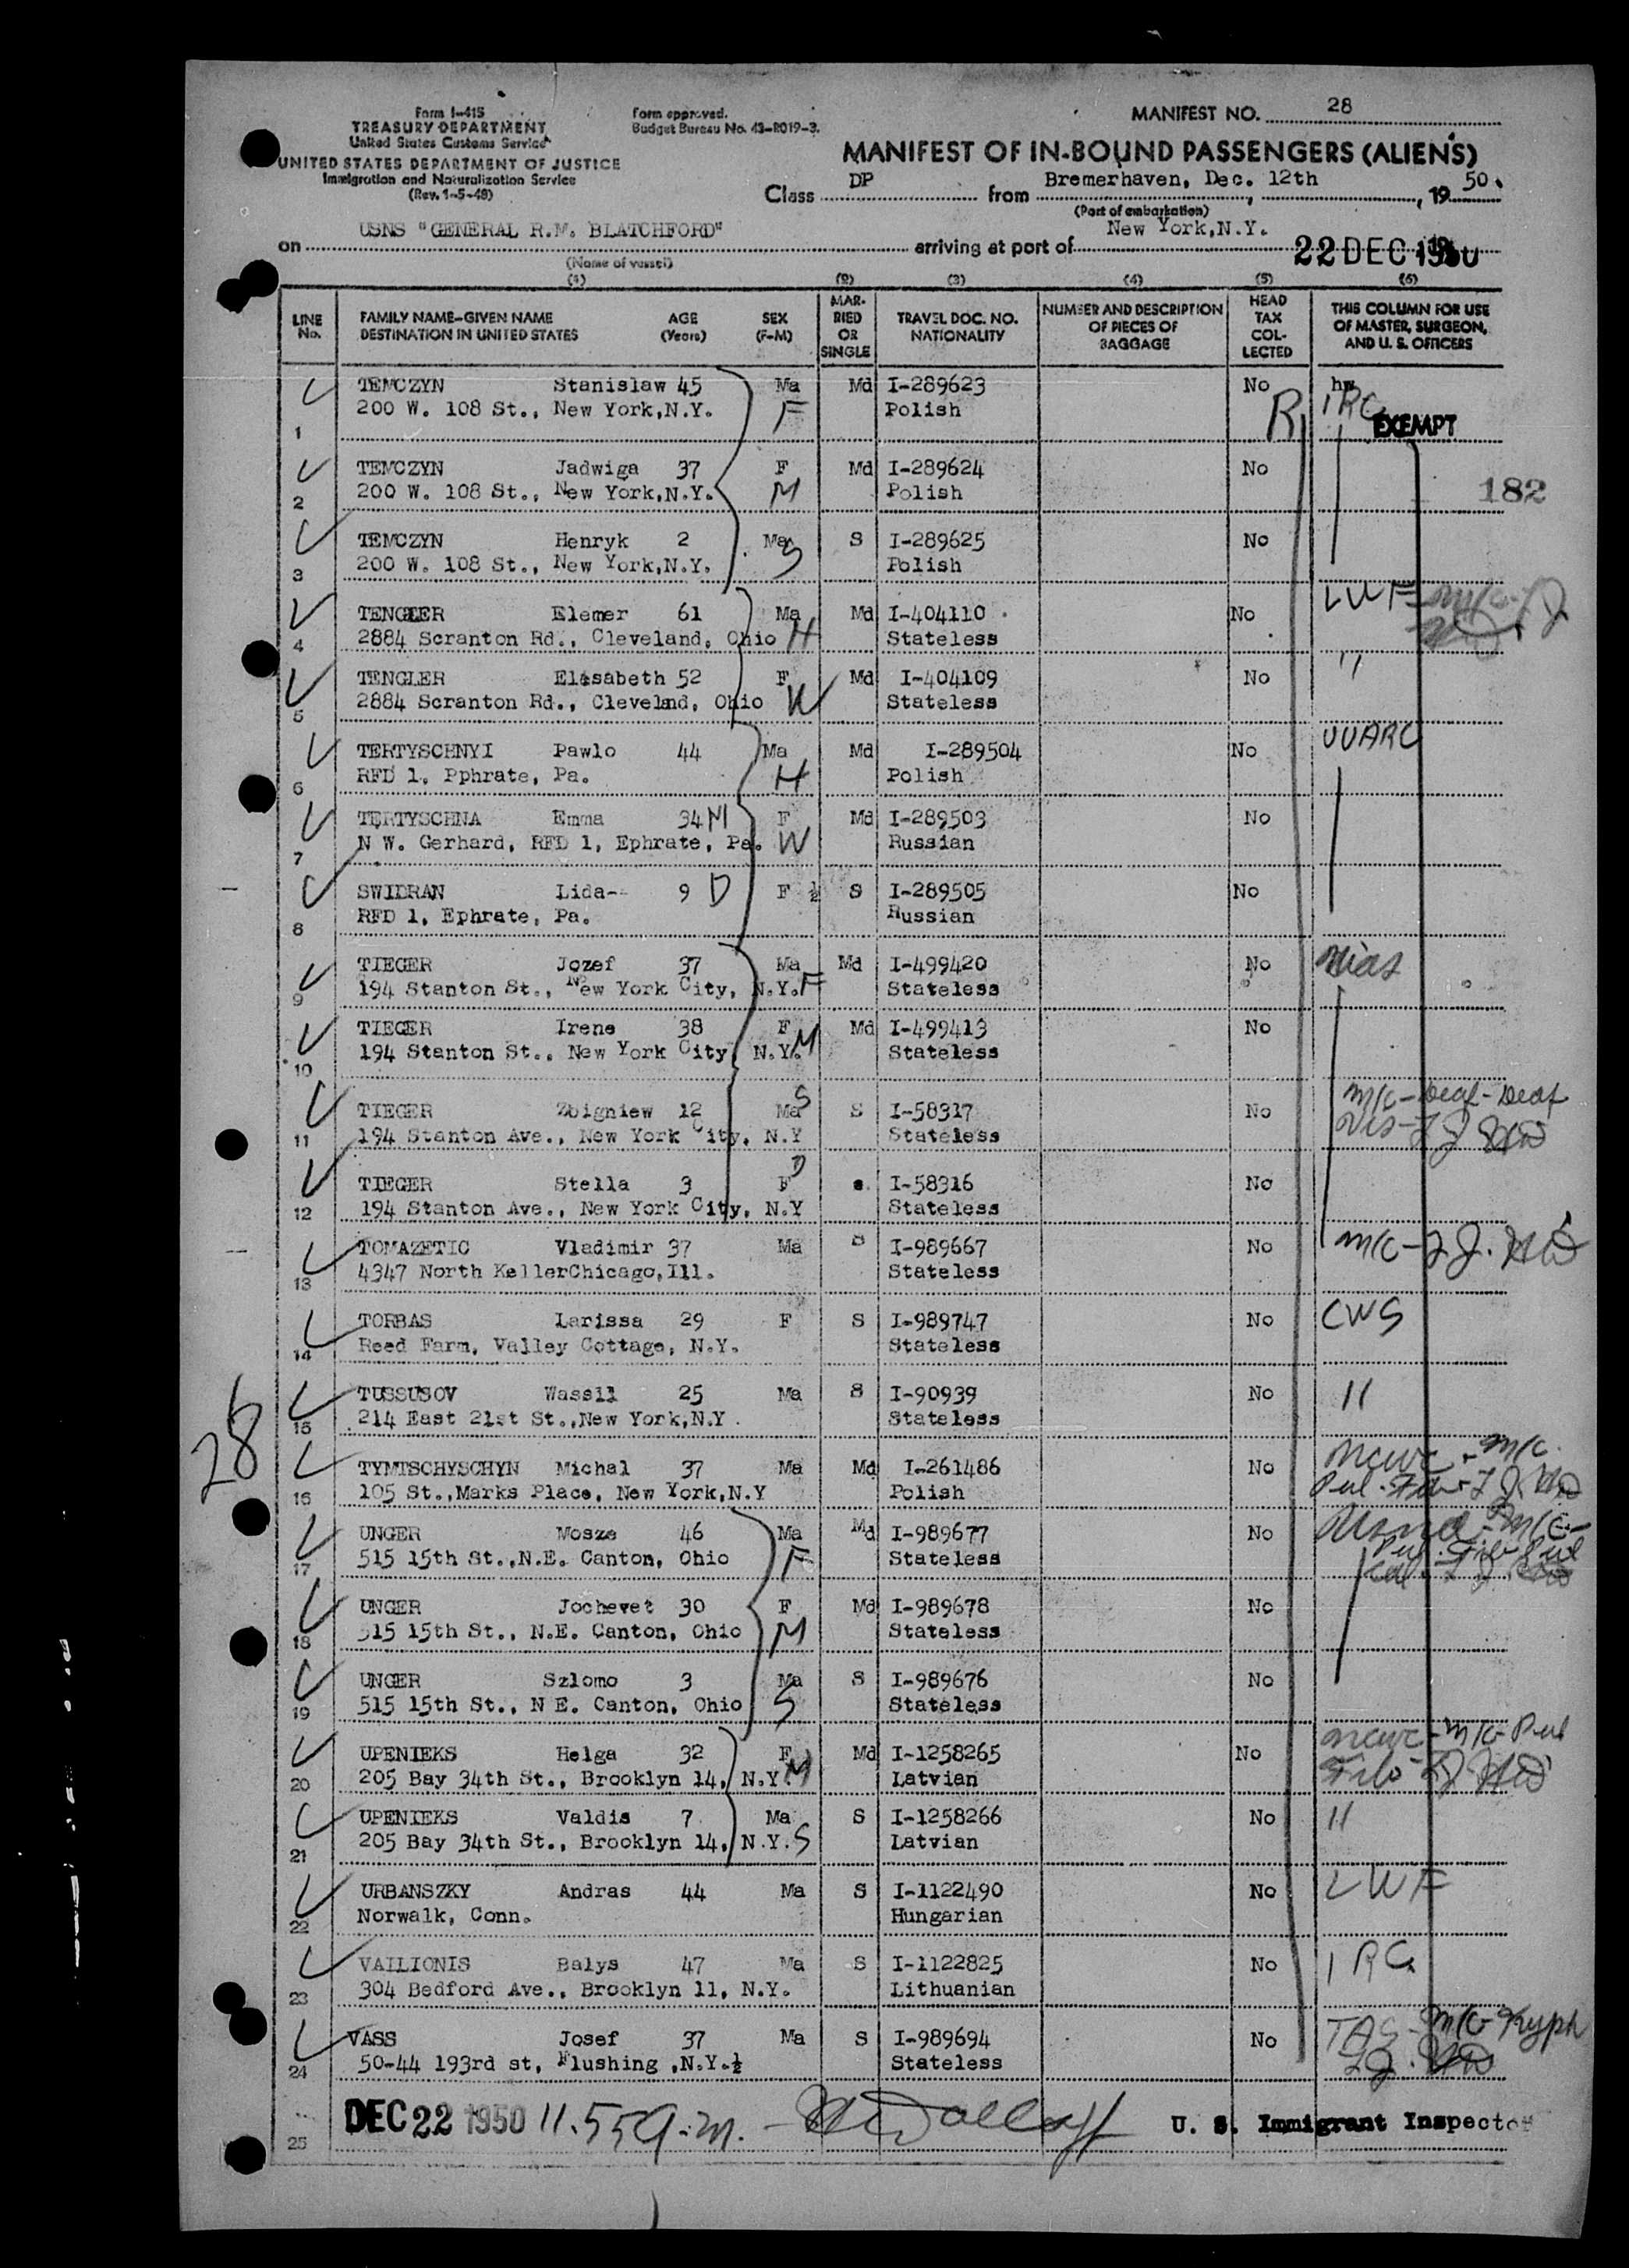 Form I-415
TREASURY DEPARTMENT
United States Customs Service
UNITED STATES DEPARTMENT OF JUSTICE
Immigration and Naturalization Service
(Rev. 1-5-48)
Form approved.
Budget Bureau No. 43-R019-3.
MANIFEST NO. 28
MANIFEST OF IN-BOUND PASSENGERS (ALIENS)
Class DP from Bremerhaven, Dec. 12th, 19 50.
(Port of embarkation)
on USNS "GENERAL R.M. BLATCHFORD" arriving at port of New York,N.Y. 22 DEC 1950
(Name of vessel)
(1) (2) (3) (4) (5) (6)
LINE No. FAMILY NAME-GIVEN NAME DESTINATION IN UNITED STATES AGE (Years) SEX (F-M) MARRIED OR SINGLE TRAVEL DOC. NO. NATIONALITY NUMBER AND DESCRIPTION OF PIECES OF BAGGAGE HEAD TAX COLLECTED THIS COLUMN FOR USE OF MASTER, SURGEON, AND U. S. OFFICERS
TEMCZYN Stanislaw 45 Ma Md I-289623 No IRC
1 200 W. 108 St., New York,N.Y. F Polish R EXEMPT
TEMCZYN Jadwiga 37 F Md I-289624 No
2 200 W. 108 St., New York,N.Y. M Polish 182
TEMCZYN Henryk 2 Ma S I-289625 No
3 200 W. 108 St., New York,N.Y. S Polish
TENGLER Elemer 61 Ma Md I-404110 No LWF
4 2884 Scranton Rd., Cleveland, Ohio H Stateless
TENGLER Elisabeth 52 F Md I-404109 No "
5 2884 Scranton Rd., Clevelnd, Ohio W Stateless
TERTYSCHNYI Pawlo 44 Ma Md I-289504 No UUARC
6 RFD 1, Pphrate, Pa. H Polish
TERTYSCHNA Emma 34 M F Md I-289503 No
7 N W. Gerhard, RFD 1, Ephrate, Pa. W Russian
SWIDRAN Lida-- 9 D F ½ S I-289505 No
8 RFD 1, Ephrate, Pa. Russian
TIEGER Jozef 37 Ma Md I-499420 No Hias
9 194 Stanton St., New York City, N.Y. F Stateless
TIEGER Irene 38 F Md I-499413 No
10 194 Stanton St., New York City, N.Y. M Stateless
TIEGER Zbigniew 12 Ma S S I-58317 No M/C-Deaf-Deaf
11 194 Stanton Ave., New York City, N.Y Stateless
TIEGER Stella 3 F D s. I-58316 No
12 194 Stanton Ave., New York City, N.Y Stateless
TOMAZETIC Vladimir 37 Ma S I-989667 No M/C
13 4347 North KellerChicago,Ill. Stateless
TORBAS Larissa 29 F S I-989747 No CWS
14 Reed Farm, Valley Cottage, N.Y. Stateless
TUSSUSOV Wassil 25 Ma S I-90939 No "
15 214 East 21st St.,New York,N.Y. Stateless
28
TYMTSCHYSCHYN Michal 37 Ma Md I-261486 No NCWC - M/C
16 105 St.,Marks Place, New York,N.Y Polish
UNGER Mosze 46 Ma Md I-989677 No
17 515 15th St.,N.E. Canton, Ohio F Stateless
UNGER Jochevet 30 F Md I-989678 No
18 515 15th St., N.E. Canton, Ohio M Stateless
UNGER Szlomo 3 Ma S I-989676 No
19 515 15th St., N E. Canton, Ohio S Stateless
UPENIEKS Helga 32 F Md I-1258265 No NCWC-M/C-Pul
20 205 Bay 34th St., Brooklyn 14, N.Y. M Latvian
UPENIEKS Valdis 7 Ma S I-1258266 No "
21 205 Bay 34th St., Brooklyn 14, N.Y. S Latvian
URBANSZKY Andras 44 Ma S I-1122490 No LWF
22 Norwalk, Conn. Hungarian
VAILIONIS Balys 47 Ma S I-1122825 No IRC
23 304 Bedford Ave., Brooklyn 11, N.Y. Lithuanian
VASS Josef 37 Ma S I-989694 No M/C-Kyph
24 50-44 193rd st, Flushing ,N.Y.½ Stateless
25 DEC 22 1950 11.55 a.m. U. S. Immigrant Inspector